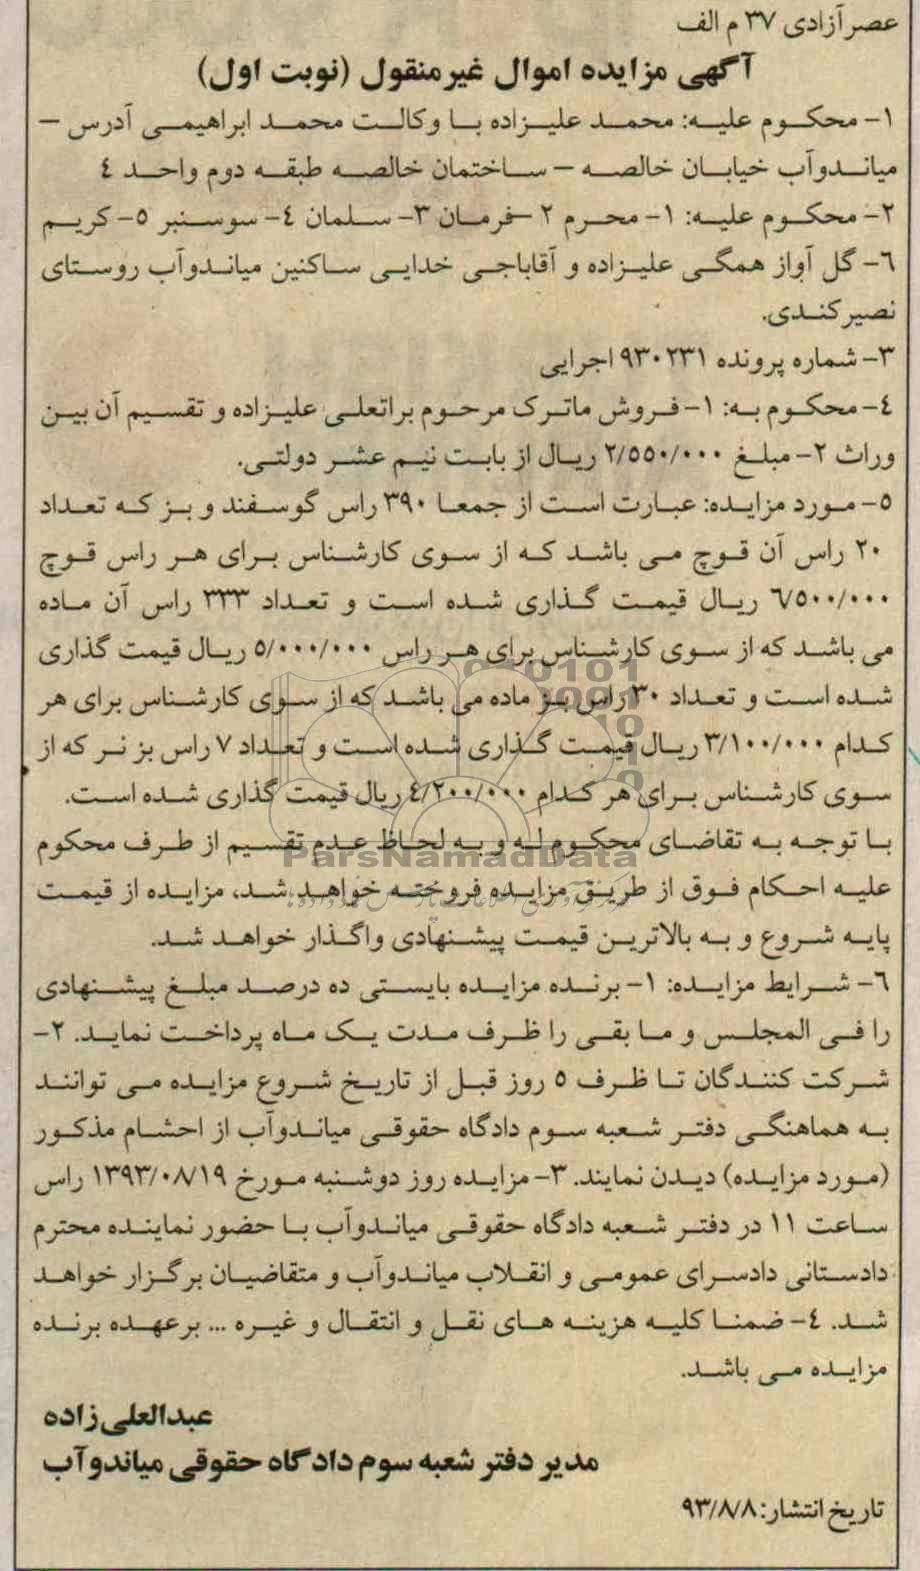 عصرآزادی ۳۷ م الف
آگهی مزایده اموال غیرمنقول (نوبت اول)
۱- محکوم علیه: محمد علیزاده با وکالت محمد ابراهیمی آدرس –
میاندوآب خیابان خالصه – ساختمان خالصه طبقه دوم واحد ٤
۲- محکوم علیه: ۱- محرم ۲ -فرمان ۳- سلمان ٤- سوسنبر ٥- کریم
٦- گل آواز همگی علیزاده و آقاباجی خدایی ساکنین میاندوآب روستای
نصیرکندی.
۳- شماره پرونده ۹۳۰۲۳۱ اجرایی
٤- محکوم به: ۱- فروش ماترک مرحوم براتعلی علیزاده و تقسیم آن بین
وراث ۲- مبلغ ۲/٥٥۰/۰۰۰ ریال از بابت نیم عشر دولتی.
٥- مورد مزایده: عبارت است از جمعا ۳۹۰ راس گوسفند و بز که تعداد
۲۰ راس آن قوچ می باشد که از سوی کارشناس برای هر راس قوچ
٦/٥۰۰/۰۰۰ ریال قیمت گذاری شده است و تعداد ۳۳۳ راس آن ماده
می باشد که از سوی کارشناس برای هر راس ٥/۰۰۰/۰۰۰ ریال قیمت گذاری
شده است و تعداد ۳۰ راس بز ماده می باشد که از سوی کارشناس برای هر
کدام ۳/۱۰۰/۰۰۰ ریال قیمت گذاری شده است و تعداد ۷ راس بز نر که از
سوی کارشناس برای هر کدام ٤/۲۰۰/۰۰۰ ریال قیمت گذاری شده است.
با توجه به تقاضای محکوم له و به لحاظ عدم تقسیم از طرف محکوم
علیه احکام فوق از طریق مزایده فروخته خواهد شد، مزایده از قیمت
پایه شروع و به بالاترین قیمت پیشنهادی واگذار خواهد شد.
٦- شرایط مزایده: ۱- برنده مزایده بایستی ده درصد مبلغ پیشنهادی
را فی المجلس و ما بقی را ظرف مدت یک ماه پرداخت نماید. ۲-
شرکت کنندگان تا ظرف ٥ روز قبل از تاریخ شروع مزایده می توانند
به هماهنگی دفتر شعبه سوم دادگاه حقوقی میاندوآب از احشام مذکور
(مورد مزایده) دیدن نمایند. ۳- مزایده روز دوشنبه مورخ ۱۳۹۳/۰۸/۱۹ راس
ساعت ۱۱ در دفتر شعبه دادگاه حقوقی میاندوآب با حضور نماینده محترم
دادستانی دادسرای عمومی و انقلاب میاندوآب و متقاضیان برگزار خواهد
شد. ٤- ضمنا کلیه هزینه های نقل و انتقال و غیره ... برعهده برنده
مزایده می باشد.
عبدالعلی زاده
مدیر دفتر شعبه سوم دادگاه حقوقی میاندوآب
تاریخ انتشار: ۹۳/۸/۸
ParsNamadData